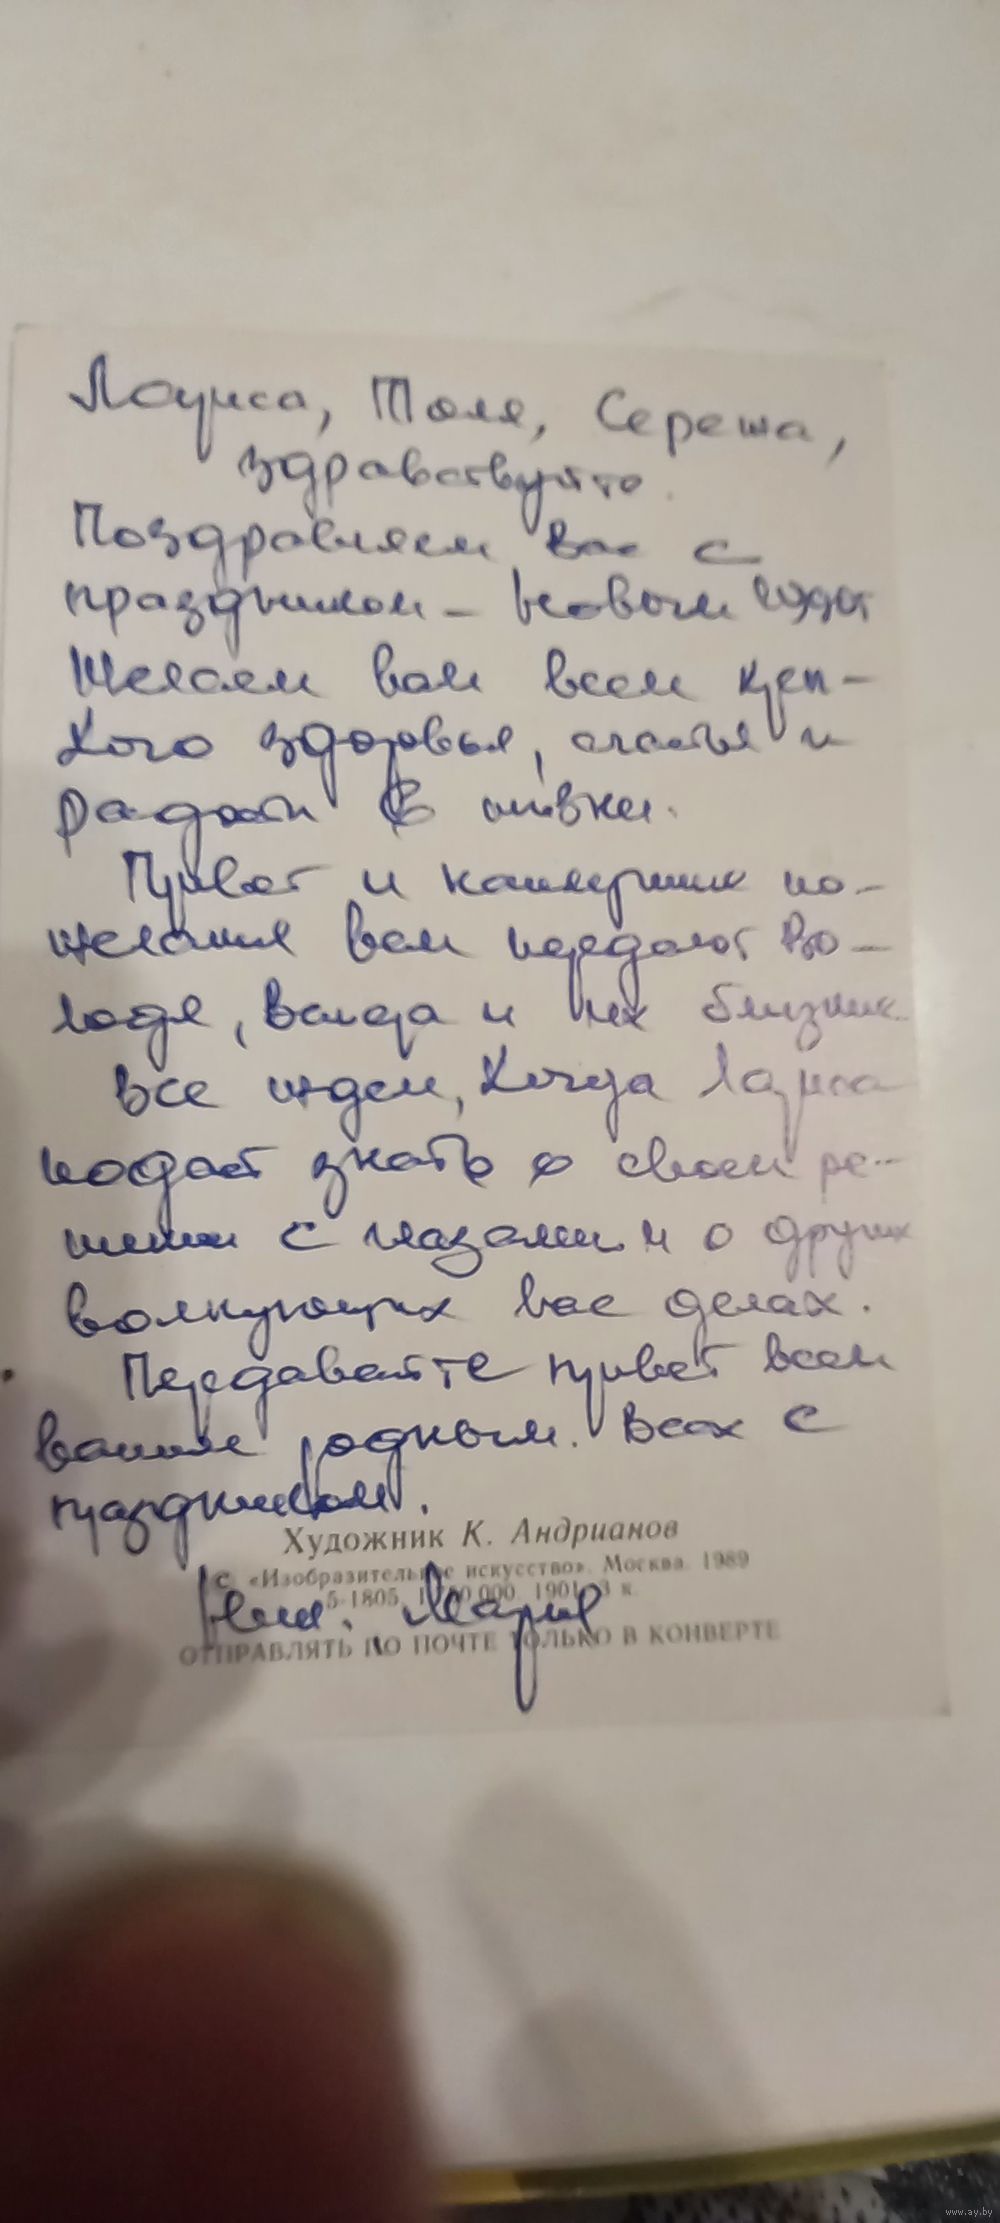 Лариса, Толя, Сережа,
здравствуйте.
Поздравляем вас с
праздником – Новым годом
Желаем вам всем креп-
кого здоровья, счастья и
радости в жизни.
Привет и наилучшие по-
желания вам передают Во-
лодя, Валера и их близкие.
Все ждем, когда Лариса
подаст знать о своем ре-
шении с глазами и о других
волнующих вас делах.
Передавайте привет всем
вашим родным. Всех с
праздником.
Художник К. Андрианов
«Изобразительное искусство». Москва. 1989
5-1805. 1901. 3 к.
Мария
ОТПРАВЛЯТЬ ПО ПОЧТЕ ТОЛЬКО В КОНВЕРТЕ
www.ay.by